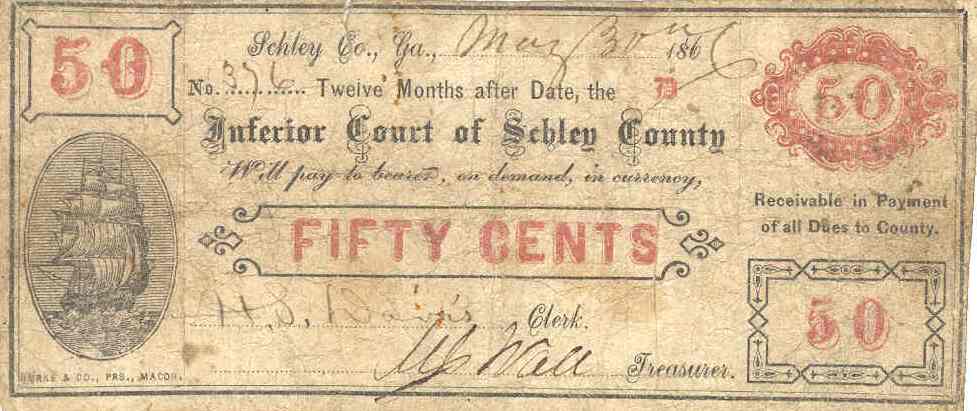 50
Schley Co., Ga., May 30th 1866
No. 376 Twelve Months after Date, the D
Inferior Court of Schley County
Will pay to bearer, on demand, in currency,
FIFTY CENTS
50
Receivable in Payment
of all Dues to County.
50
H. S. Davis Clerk.
Wall Treasurer.
BURKE & CO., PRS., MACON.